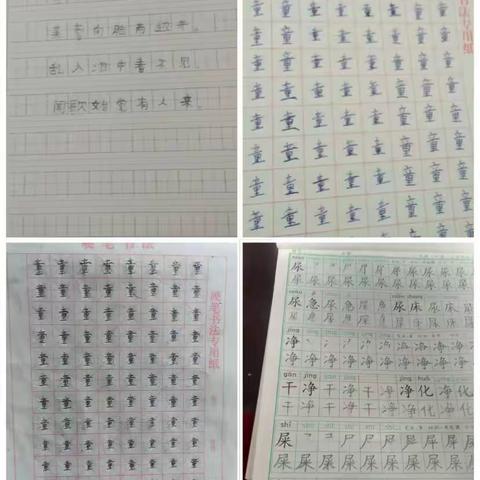 芙蓉向脸两边开。
乱入池中看不见
闻歌始觉有人来。
书法专用纸
童童童童童童童童
童童童童童童童童
童童童童童童童童
童童童童童童童童
童童童童童童童童
童童童童童童童童
童童童童童童童童
童童童童童童童童
硬笔书法
硬笔书法专用纸
童童童童童童童
童童童童童童童
童童童童童童童
童童童童童童童
童童童童童童童
童童童童童童童
童童童童童童童
童童童童童童童
童童童童童童童
童童童童童童童
尿 尿 尿 尿 尿
尿 尿 尿 尿 尿 尿 尿 尿
尿 急 尿 急 尿 尿 床 尿 床 尿
jìng
净 净 净 净 净 净
净 净 净 净 净 净 净 净
gān jìng jìng huà
干 净 干 净 干 净 净 化 净 化
干 净 干 净 干 净 净 化 净 化
shǐ
屎 尸 屎 屎 屎 屎
屎 屎 屎 屎 屎 屎 屎 屎